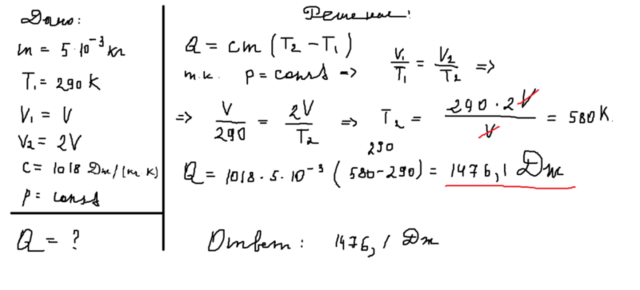 Дано:
m = 5·10⁻³ кг
T₁ = 290 K
V₁ = V
V₂ = 2V
c = 1018 Дж/(кг К)
p = const
Q = ?
Решение:
Q = cm (T₂ − T₁)
т.к. p = const => V₁/T₁ = V₂/T₂ =>
=> V/290 = 2V/T₂ => T₂ = 290·2V/V = 580 K
290
Q = 1018·5·10⁻³ (580−290) = 1476,1 Дж
Ответ: 1476,1 Дж